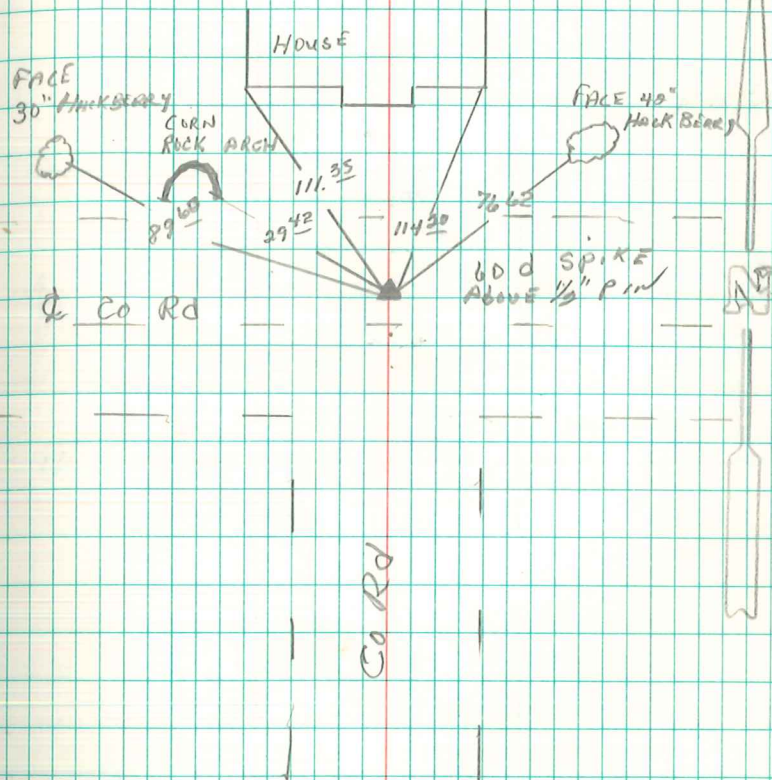 HOUSE
FACE
30" HACKBERRY
CORN
ROCK ARCH
FACE 40"
HACKBERRY
111.35
89 60
29 42
114 20
76 62
60 d SPIKE
ABOVE 1/2" PIN
℄ Co Rd
N
Co Rd